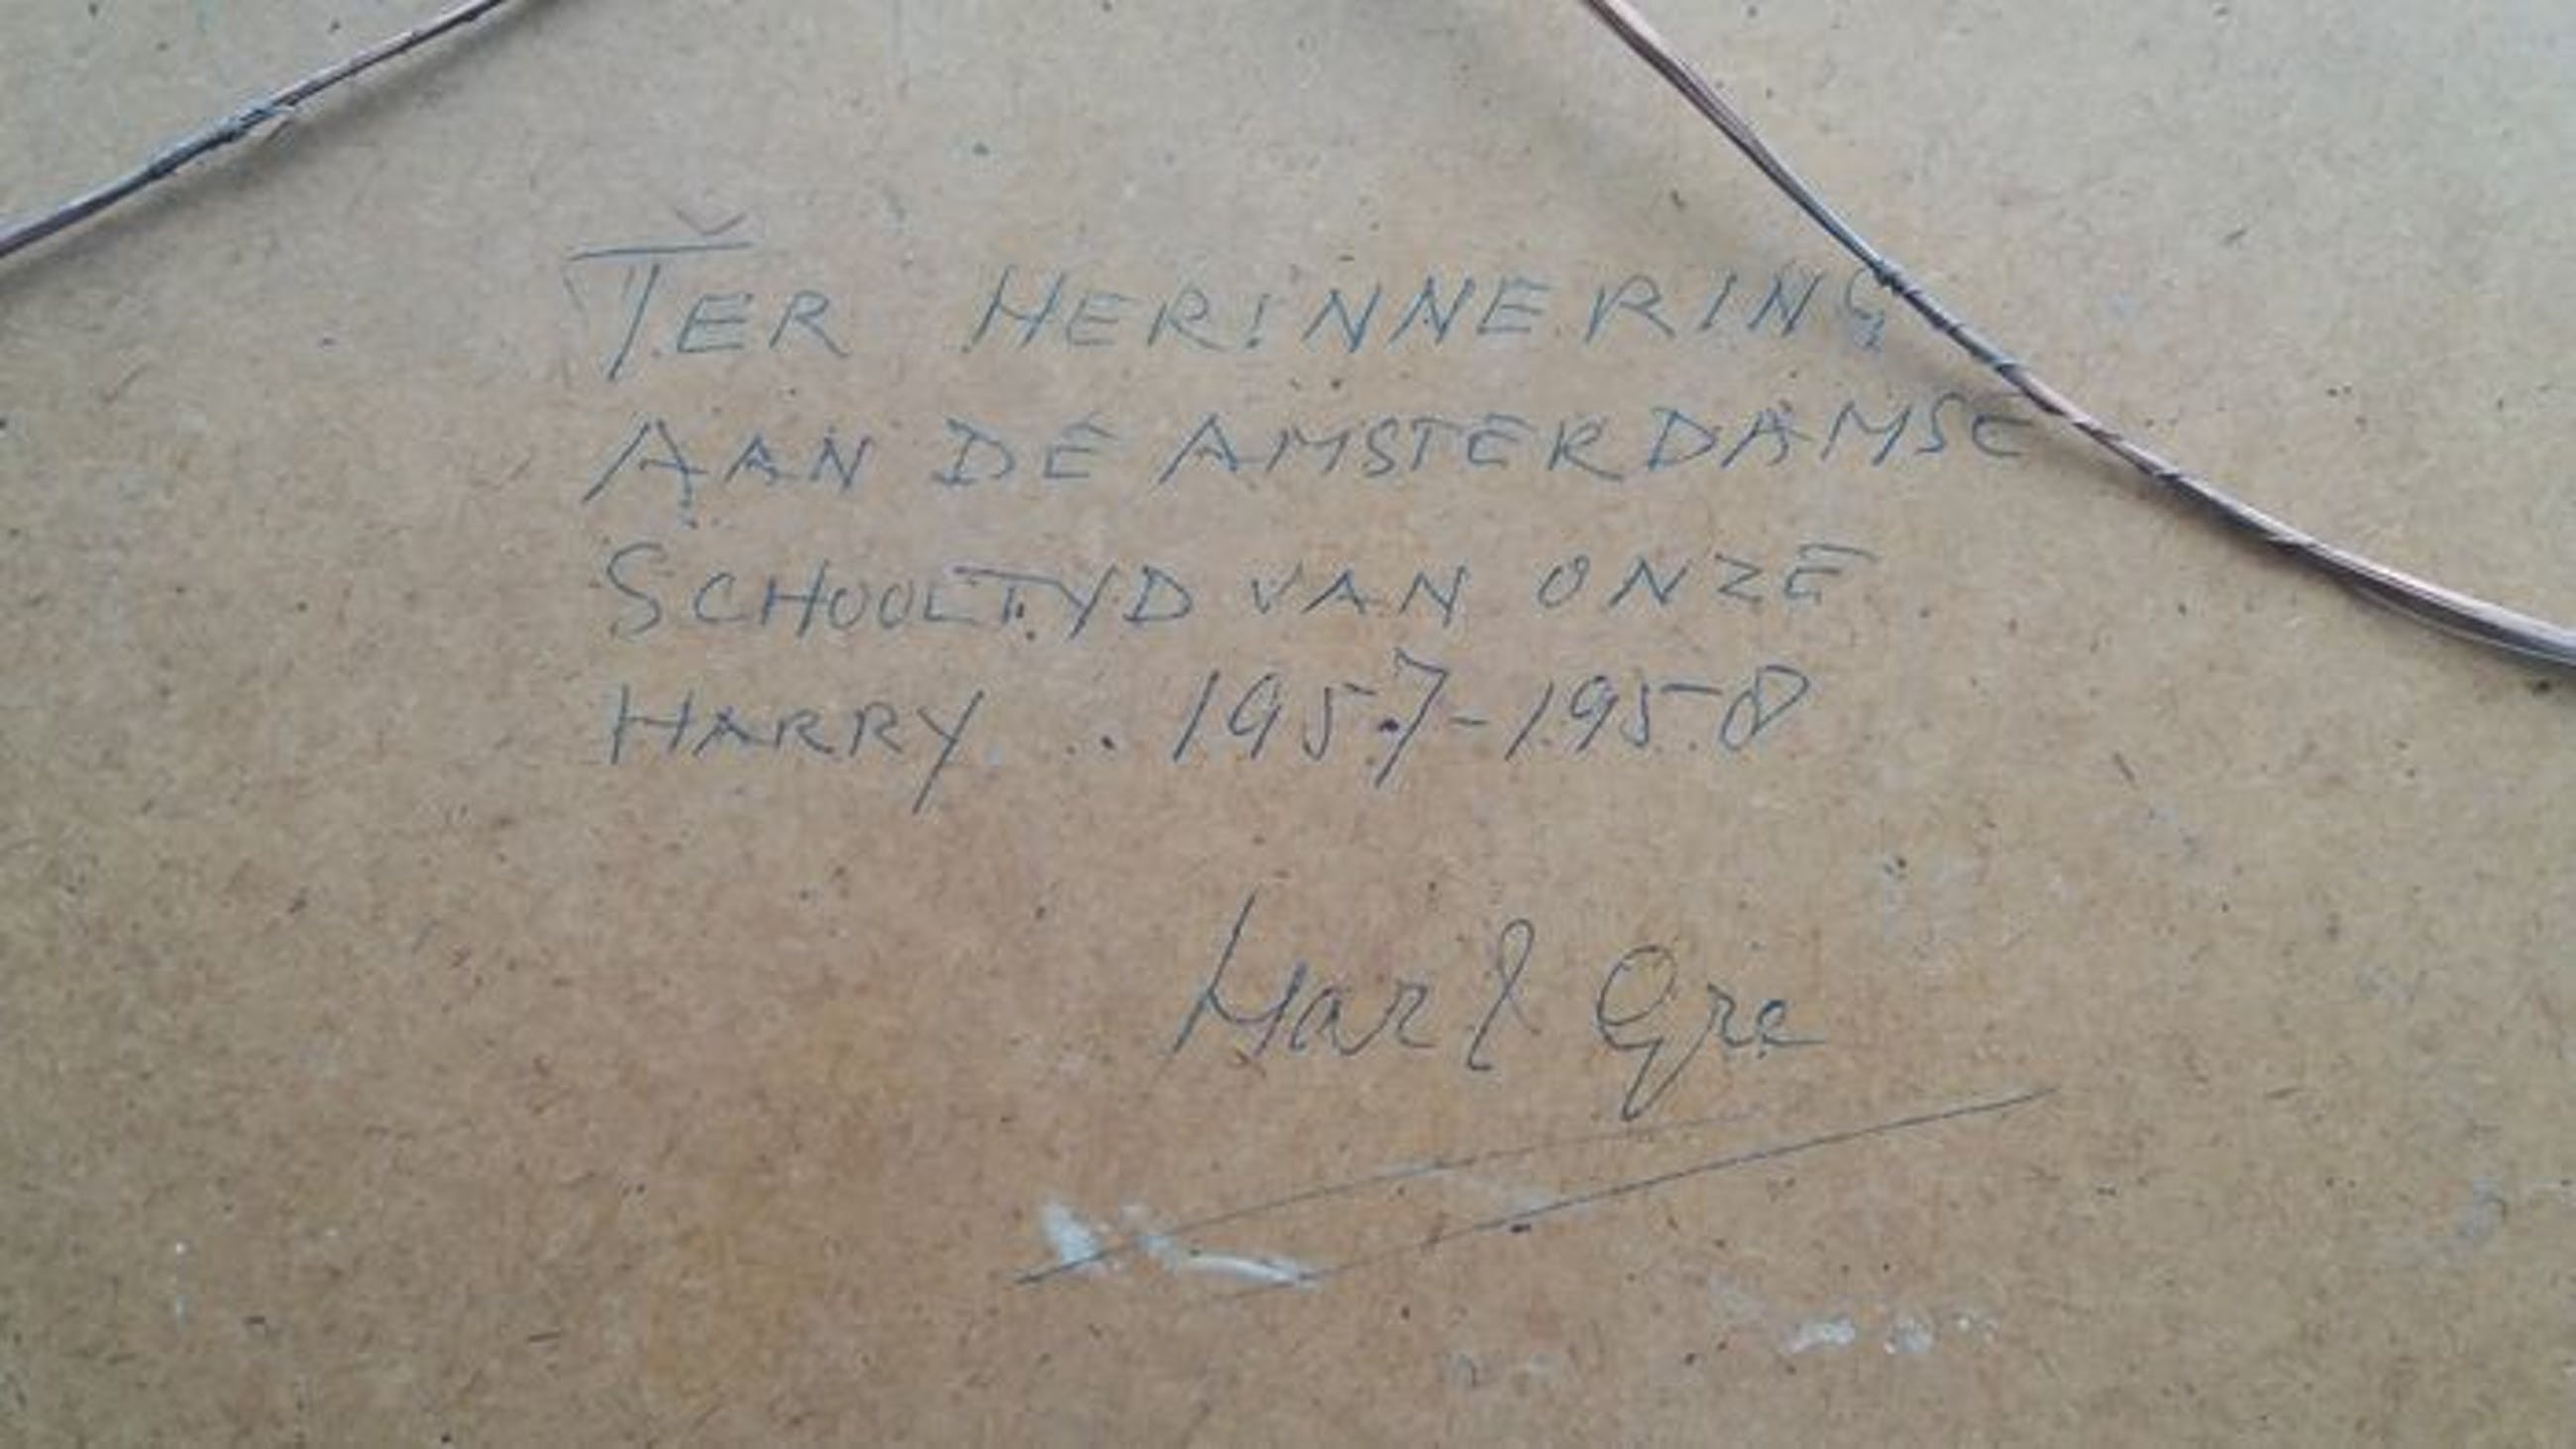 TER HERINNERING
AAN DE AMSTERDAMSE
SCHOOLTYD VAN ONZE
HARRY .. 1957-1958
Har & Gre